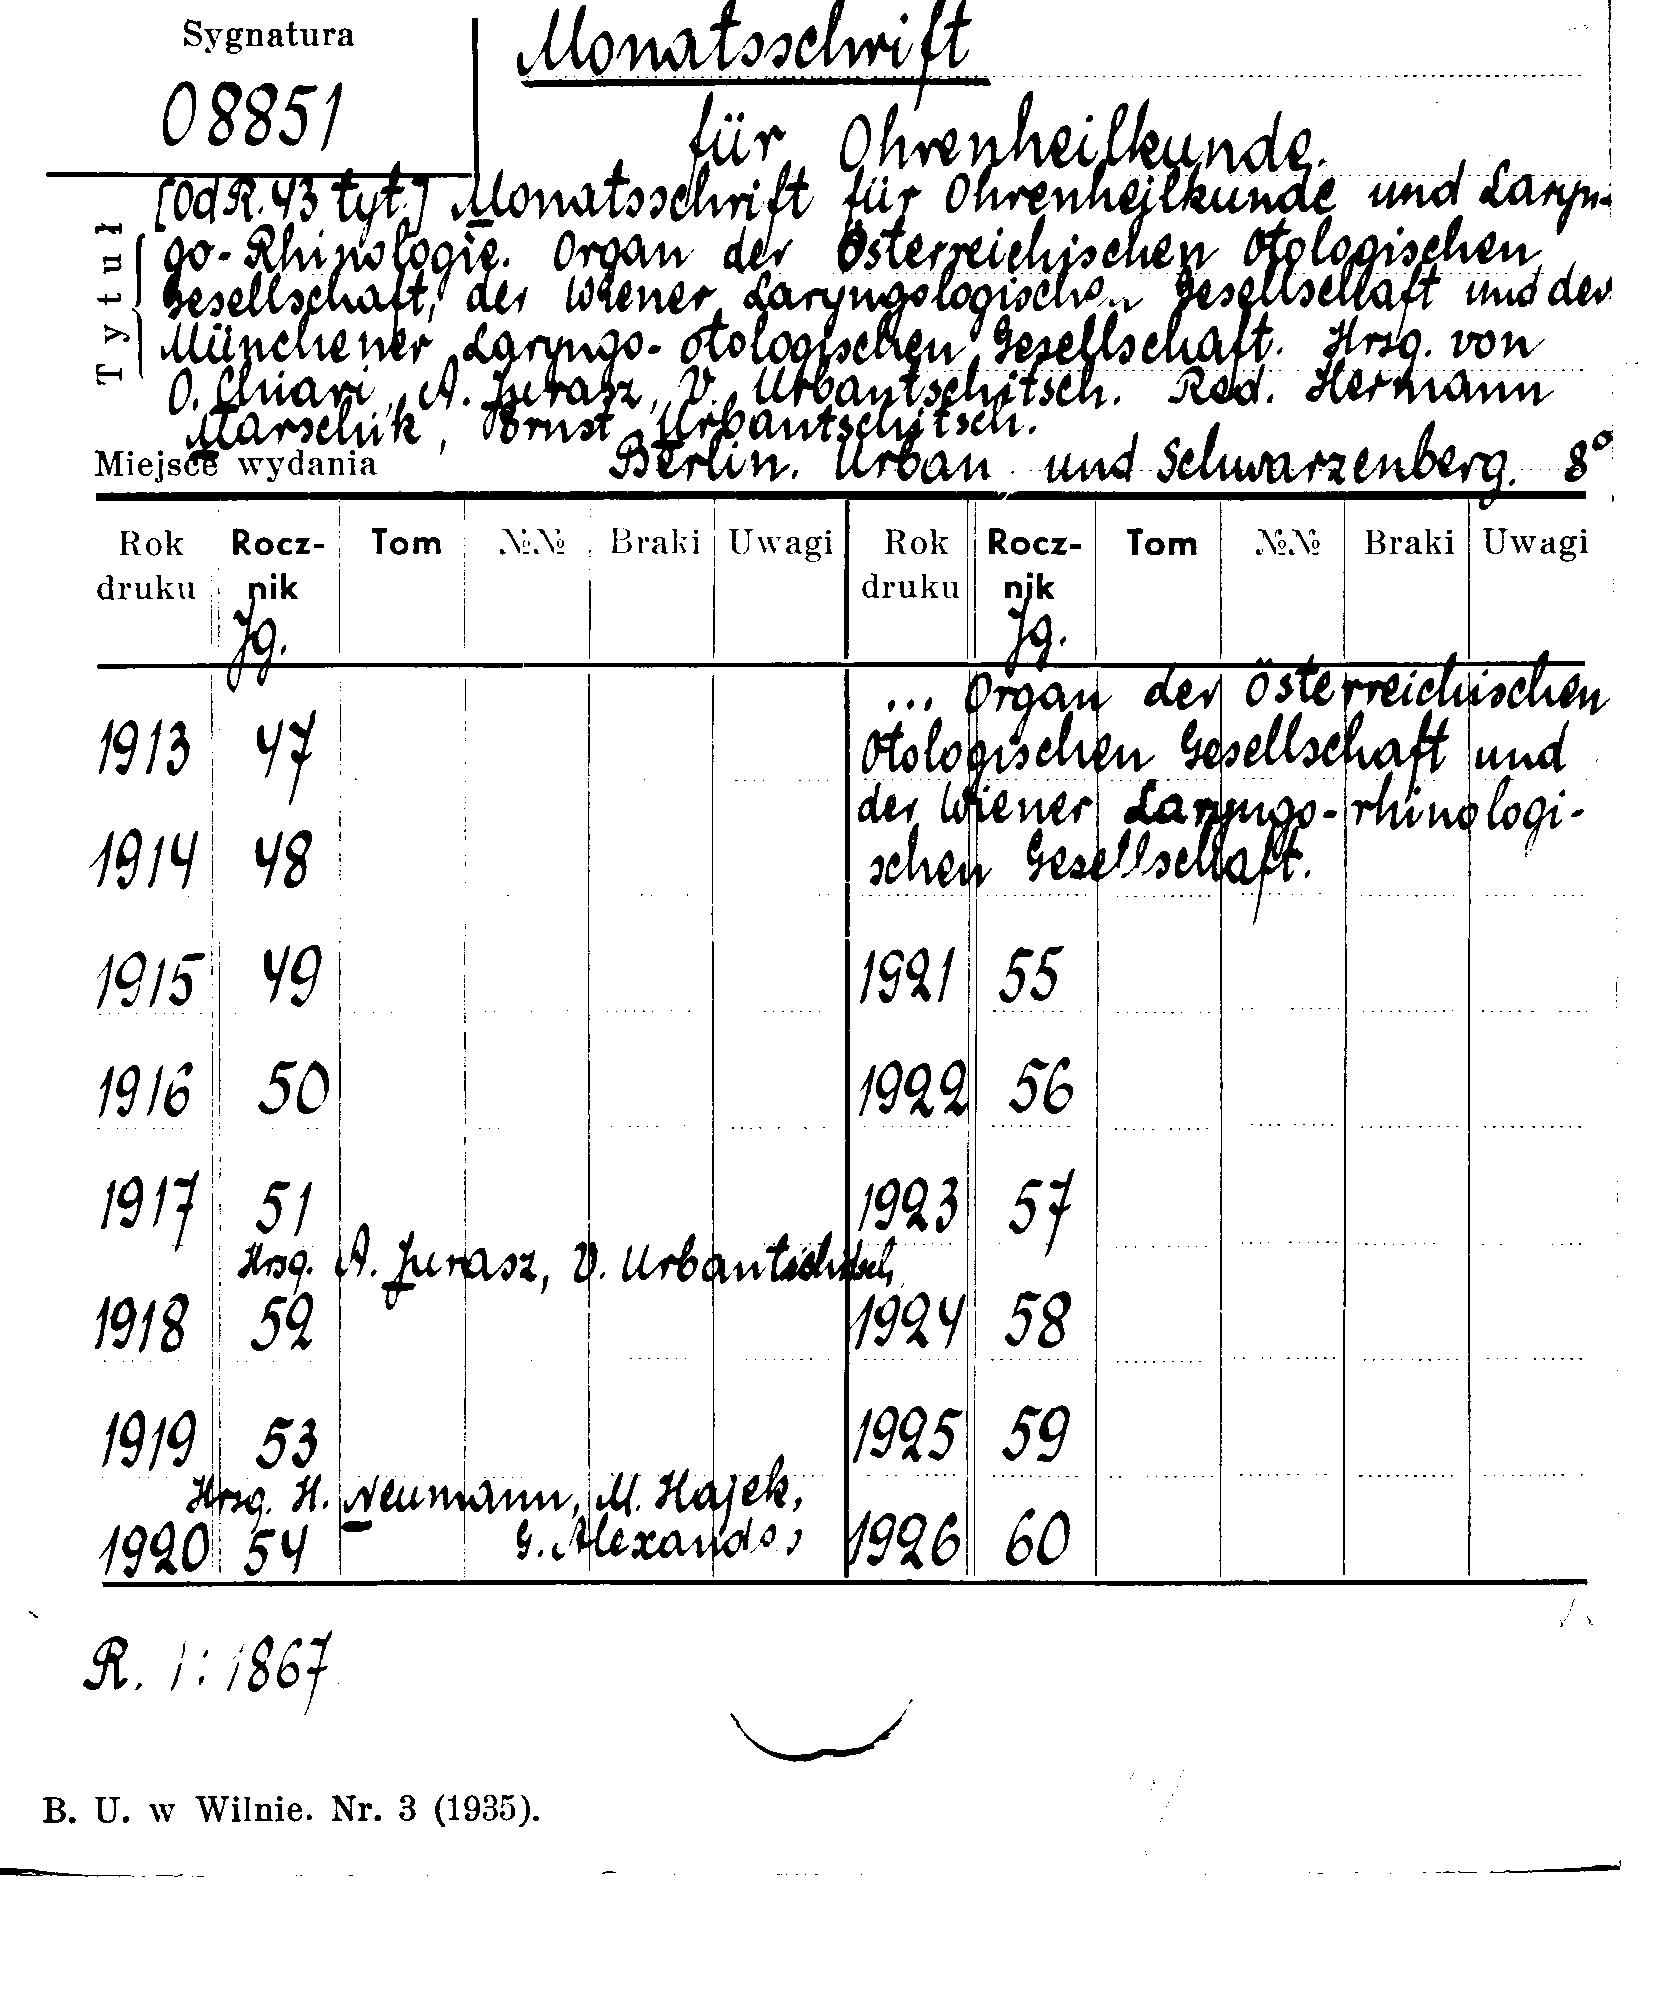 Sygnatura
08851
Monatsschrift
für Ohrenheilkunde.
Tytuł
[Od R. 43 tyt.] Monatsschrift für Ohrenheilkunde und Laryn-
go-Rhinologie. Organ der Österreichischen Otologischen
Gesellschaft, der Wiener Laryngologischen Gesellschaft und der
Münchener Laryngo-otologischen Gesellschaft. Hrsg. von
O. Chiari, A. Jurasz, V. Urbantschitsch. Red. Hermann
Marschik, Ernst Urbantschitsch.
Miejsce wydania Berlin. Urban und Schwarzenberg. 8°
Rok druku Rocz-nik Tom №№ Braki Uwagi Rok druku Rocz-nik Tom №№ Braki Uwagi
Jg. Jg.
1913 47
1914 48
1915 49
1916 50
1917 51
Hrsg. A. Jurasz, V. Urbantschitsch
1918 52
1919 53
Hrsg. H. Neumann, M. Hajek,
G. Alexander
1920 54
... Organ der Österreichischen
Otologischen Gesellschaft und
der Wiener Laryngo-rhinologi-
schen Gesellschaft.
1921 55
1922 56
1923 57
1924 58
1925 59
1926 60
R. 1: 1867
B. U. w Wilnie. Nr. 3 (1935).